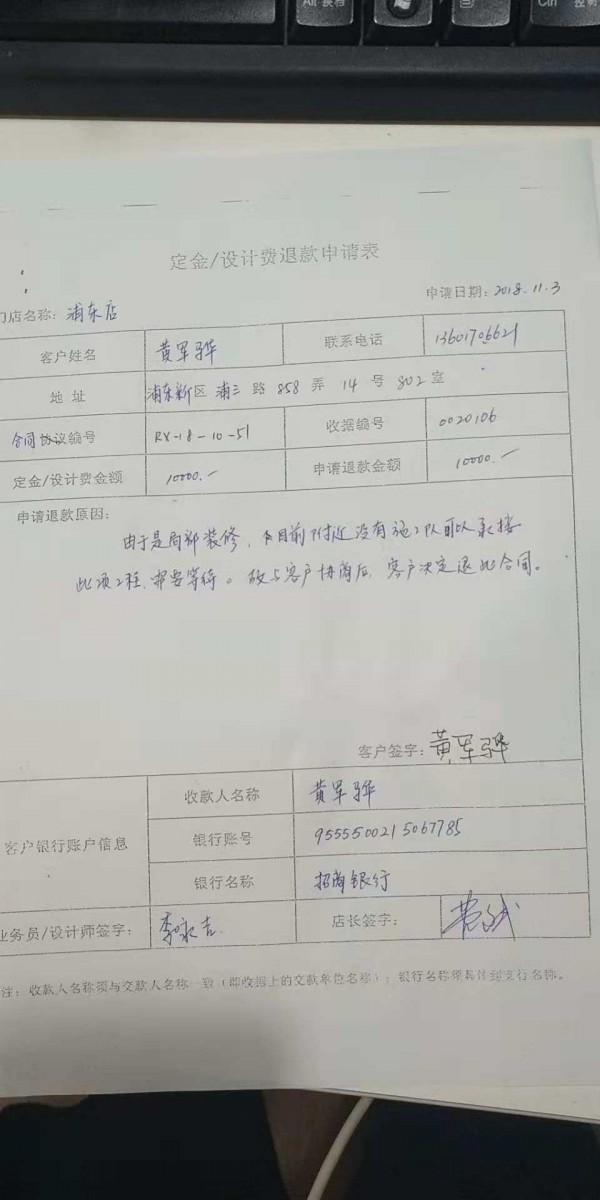 Alt 换档
Ctrl 控制
定金/设计费退款申请表
门店名称：浦东店 申请日期：2018.11.3
客户姓名 黄军骅 联系电话 13601706621
地址 浦东新区 浦三 路 858 弄 14 号 802 室
合同协议编号 RX-18-10-51 收据编号 0020106
定金/设计费金额 10000.- 申请退款金额 10000.-
申请退款原因：
由于是局部装修，目前附近没有施工队可以承接
此项工程，都要等待。故与客户协商后，客户决定退此合同。
客户签字：黄军骅
收款人名称 黄军骅
客户银行账户信息 银行账号 9555500215067785
银行名称 招商银行
业务员/设计师签字： 李永吉 店长签字：
注：收款人名称须与交款人名称一致（即收据上的交款单位名称）；银行名称须具体到支行名称。